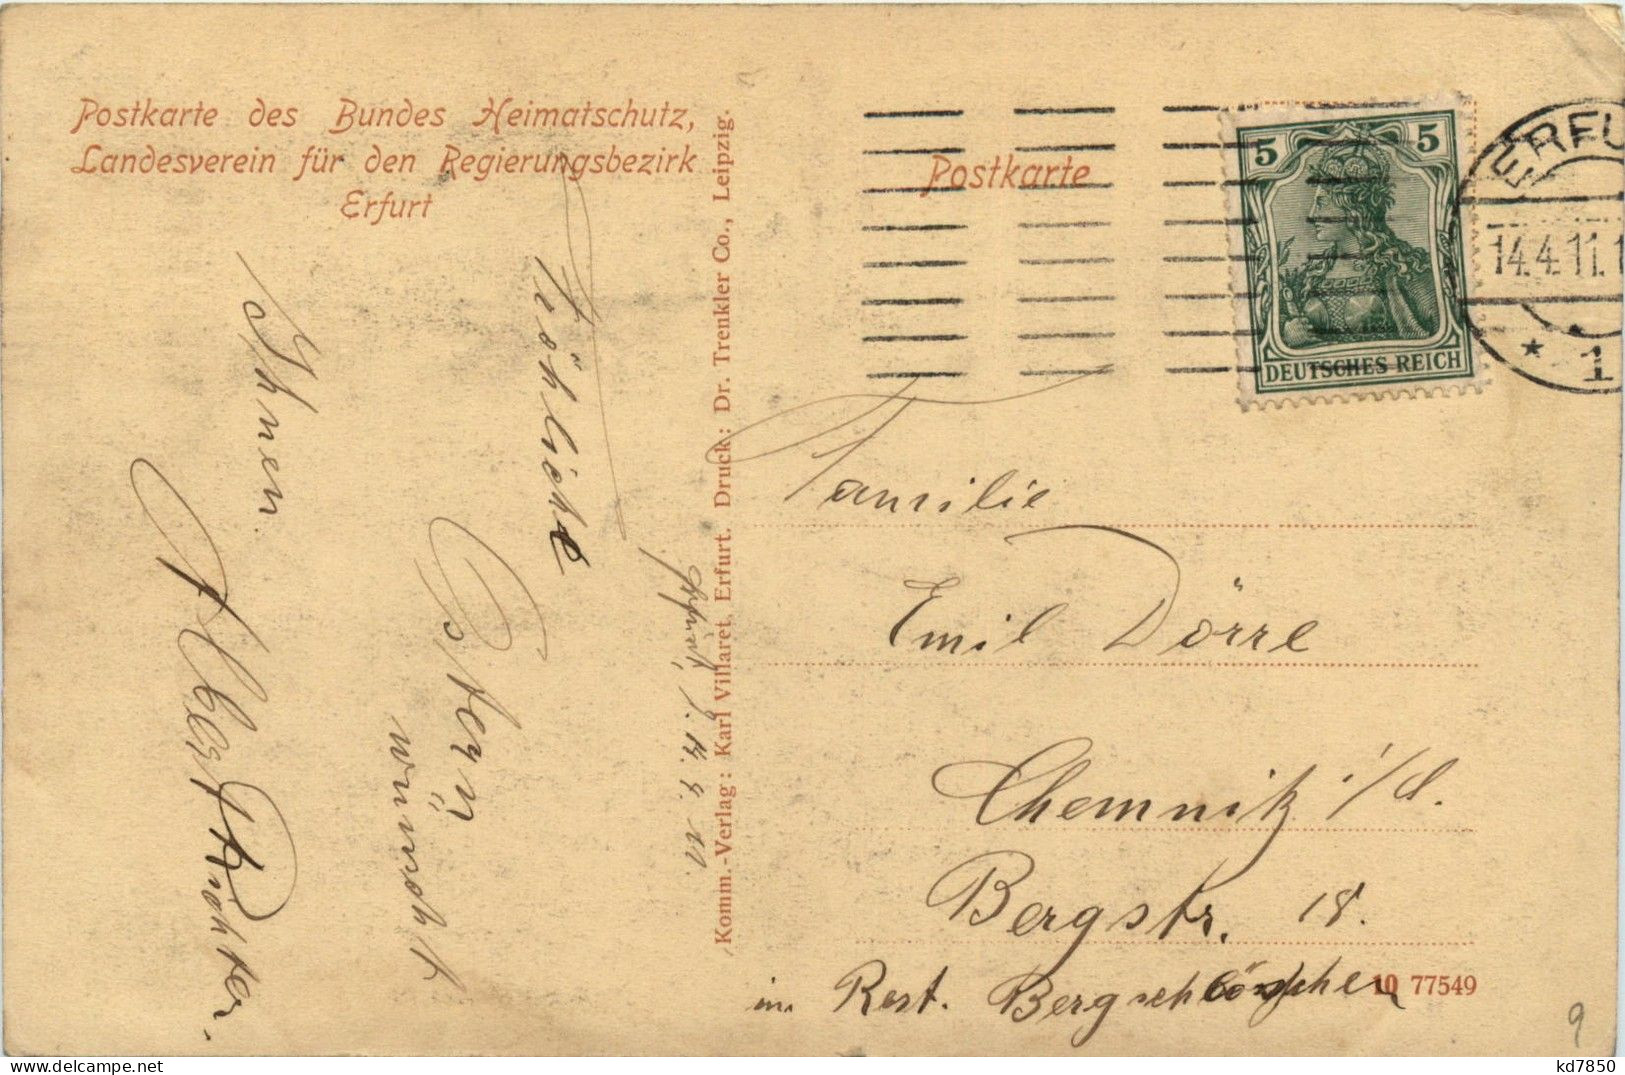 Postkarte des Bundes Heimatschutz,
Landesverein für den Regierungsbezirk
Erfurt
Postkarte
5 5
DEUTSCHES REICH
ERFU
14.4.11.1
* 1
Komm.-Verlag: Karl Villaret, Erfurt. Druck: Dr. Trenkler Co., Leipzig.
Erfurt, d. 14.4.11.
Fröhliche
Ostern
wünscht
Ihnen
Albert Richter.
Familie
Emil Dörre
Chemnitz i/S.
Bergstr. 18.
im Rest. Bergschlösschen
10 77549
9
kd7850